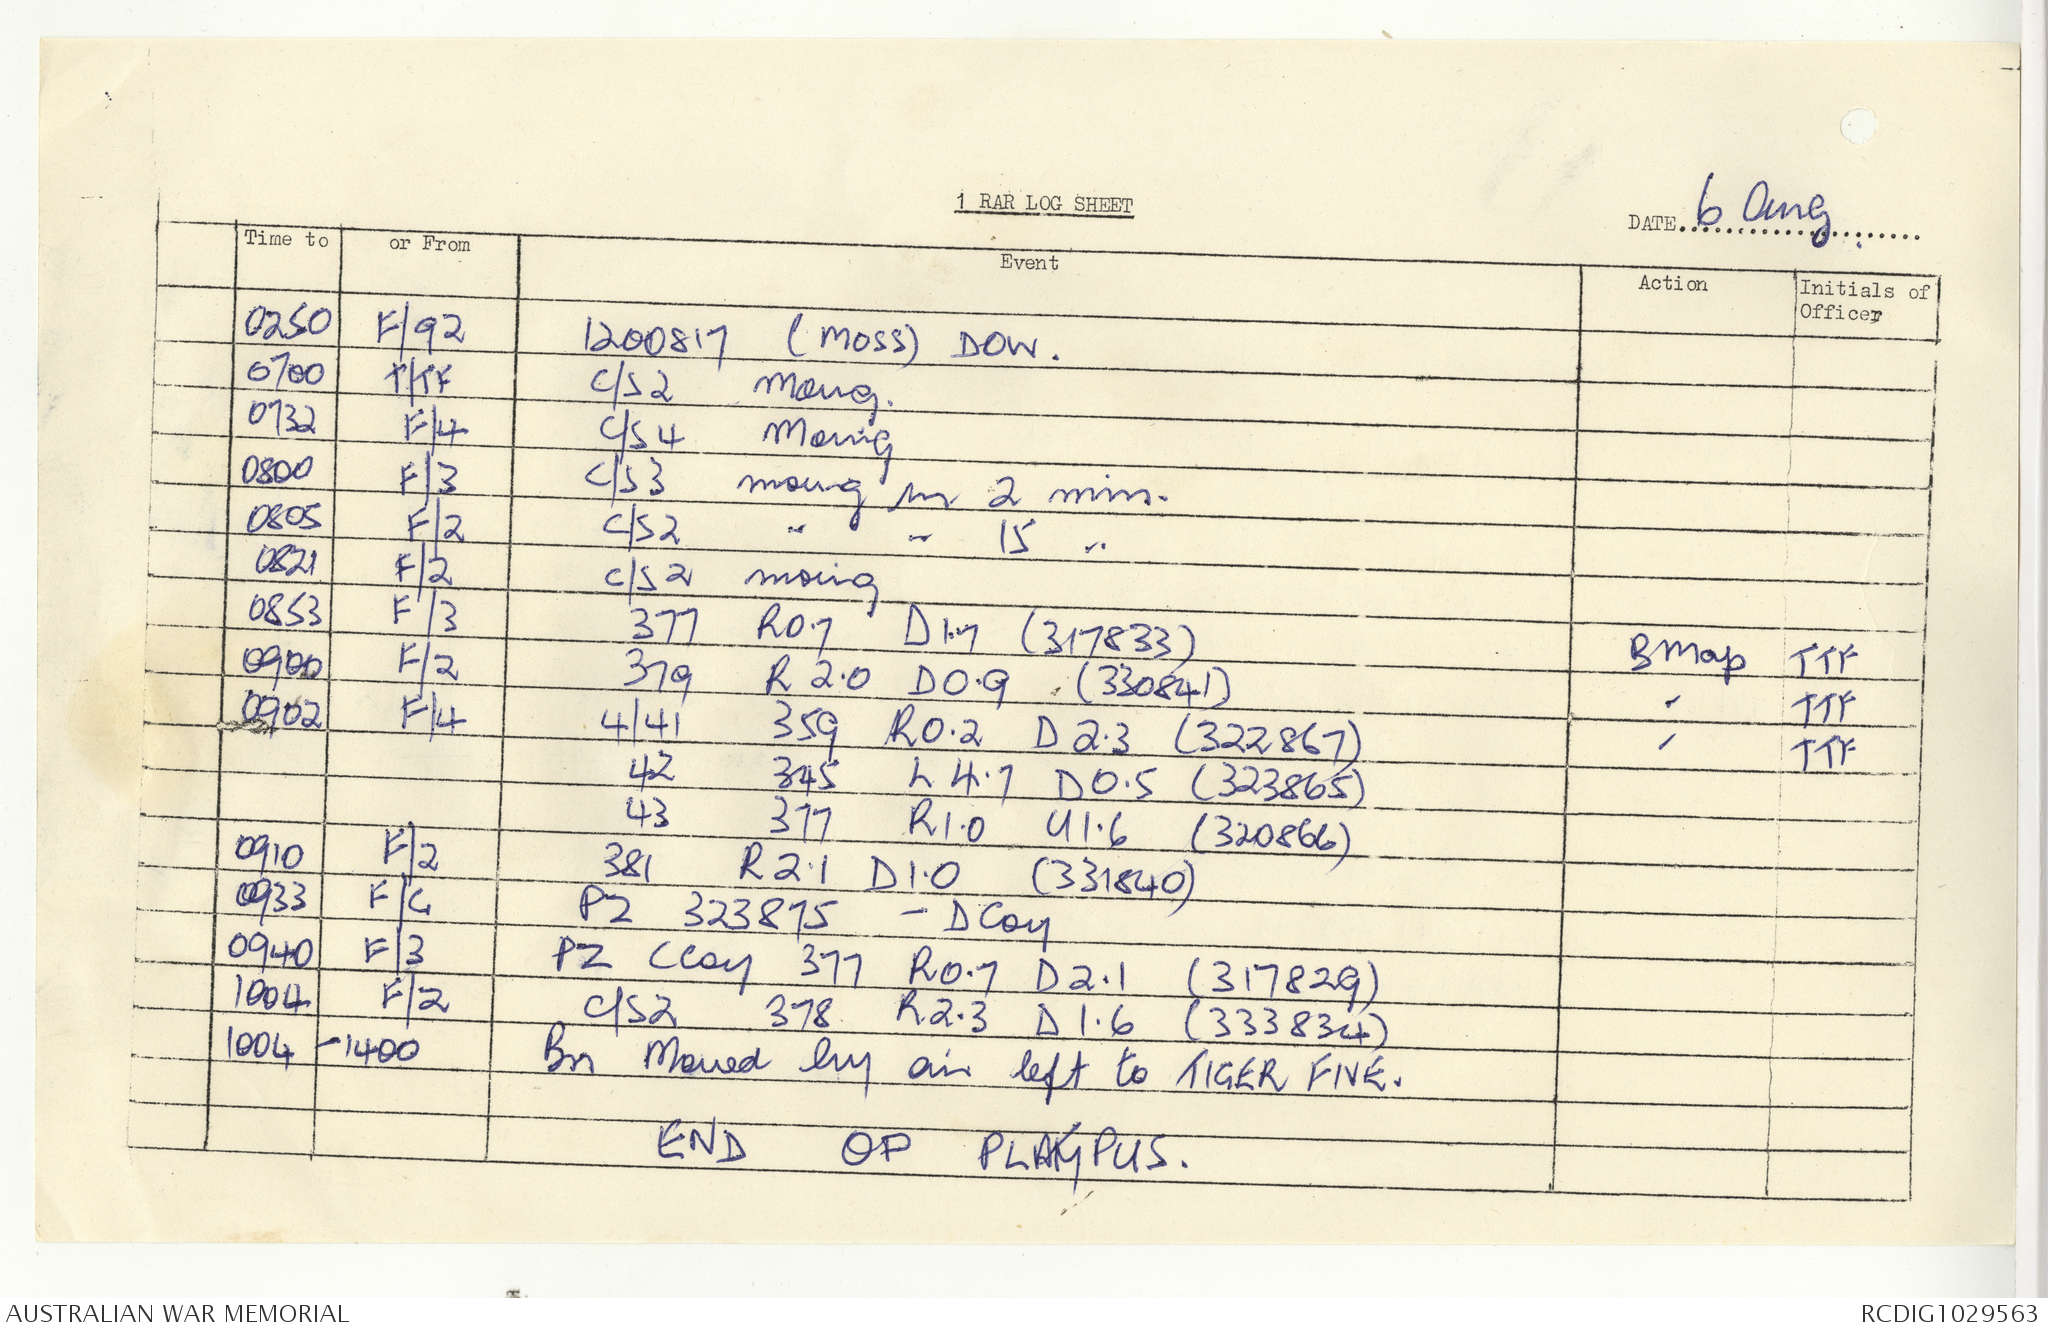 1 RAR LOG SHEET
DATE 6 Aug
Time to or From Event Action Initials of Officer
0250 F/92 1200817 (MOSS) DOW.
0700 T/TF C/S2 Moving.
0732 F/4 C/S4 Moving
0800 F/3 C/S3 moving in 2 min.
0805 F/2 C/S2 " " 15 "
0821 F/2 C/S2 moving
0853 F/3 377 R0.7 D1.7 (317833) BMap TTF
0900 F/2 379 R2.0 D0.9 (330841) " TTF
0902 F/4 4/41 359 R0.2 D2.3 (322867) " TTF
42 345 L4.7 D0.5 (323865)
43 377 R1.0 U1.6 (320866)
0910 F/2 381 R2.1 D1.0 (331840)
0933 F/G PZ 323875 - DCoy
0940 F/3 PZ CCoy 377 R0.7 D2.1 (317829)
1004 F/2 C/S2 378 R2.3 D1.6 (333834)
1004 -1400 Bn Moved by air left to TIGER FIVE.
END OF PLAYPUS.
AUSTRALIAN WAR MEMORIAL
RCDIG1029563